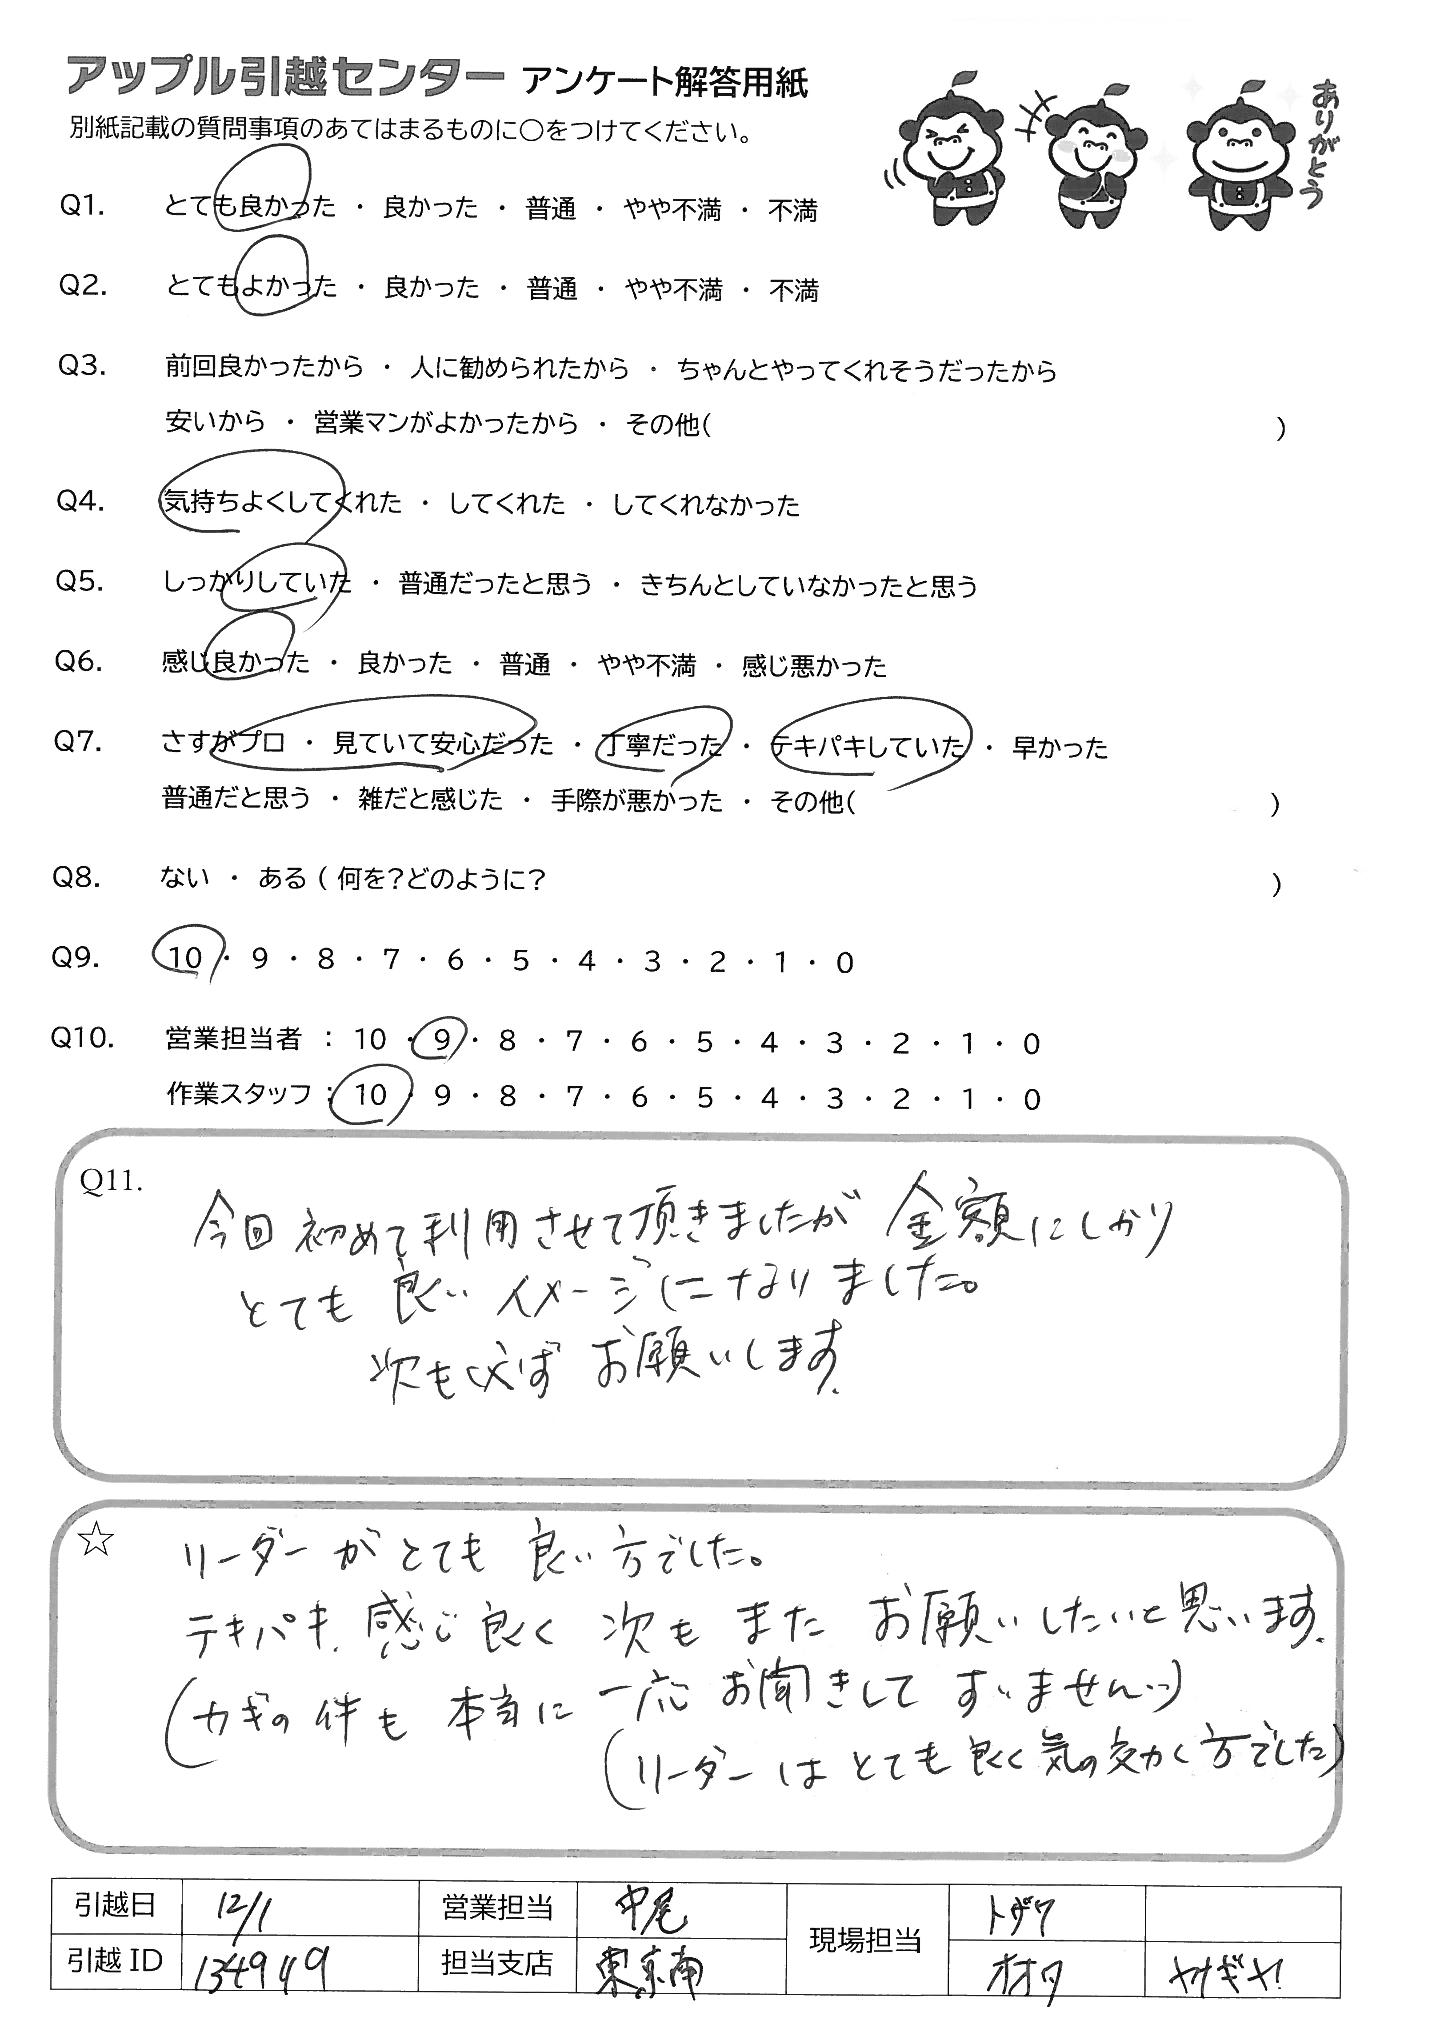 アップル引越センター アンケート解答用紙
別紙記載の質問事項のあてはまるものに○をつけてください。
ありがとう
Q1. とても良かった ・ 良かった ・ 普通 ・ やや不満 ・ 不満
Q2. とてもよかった ・ 良かった ・ 普通 ・ やや不満 ・ 不満
Q3. 前回良かったから ・ 人に勧められたから ・ ちゃんとやってくれそうだったから
安いから ・ 営業マンがよかったから ・ その他( )
Q4. 気持ちよくしてくれた ・ してくれた ・ してくれなかった
Q5. しっかりしていた ・ 普通だったと思う ・ きちんとしていなかったと思う
Q6. 感じ良かった ・ 良かった ・ 普通 ・ やや不満 ・ 感じ悪かった
Q7. さすがプロ ・ 見ていて安心だった ・ 丁寧だった ・ テキパキしていた ・ 早かった
普通だと思う ・ 雑だと感じた ・ 手際が悪かった ・ その他( )
Q8. ない ・ ある ( 何を?どのように? )
Q9. 10 ・ 9 ・ 8 ・ 7 ・ 6 ・ 5 ・ 4 ・ 3 ・ 2 ・ 1 ・ 0
Q10. 営業担当者 : 10 ・ 9 ・ 8 ・ 7 ・ 6 ・ 5 ・ 4 ・ 3 ・ 2 ・ 1 ・ 0
作業スタッフ : 10 ・ 9 ・ 8 ・ 7 ・ 6 ・ 5 ・ 4 ・ 3 ・ 2 ・ 1 ・ 0
Q11.
今回初めて利用させて頂きましたが 金額にしかり
とても良いイメージになりました。
次も必ずお願いします。
☆ リーダーがとても良い方でした。
テキパキ、感じ良く 次も また お願いしたいと思います。
(カギの件も 本当に 一応 お聞きして すいません…)
(リーダーは とても良く気の効く方でした)
引越日 12/1 営業担当 中尾 現場担当 トザワ
引越ID 担当支店 東京南 オオタ ヤナギヤ!